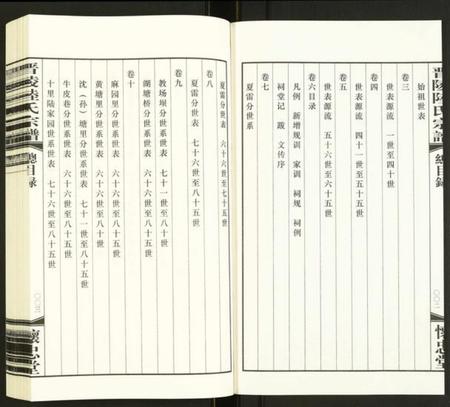 晋陵陆氏宗譜
總目録
懷忠堂
始祖世表
卷三
世表源流 一世至四十世
卷四
世表源流 四十一世至五十五世
卷五
世表源流 五十六世至六十五世
卷六目录
凡例 新增规训 家训 祠规 祠例
祠堂记 跋 文传序
卷七
夏雷分世系
夏雷分世表 六十六世至七十五世
卷八
夏雷分世表 七十六世至八十五世
卷九
教场坝分世系世表 七十一世至八十五世
湖塘桥分世系世表 六十六世至八十五世
卷十
麻园里分世系世表 六十六世至八十五世
黄塘里分世系世表 六十六世至八十五世
沈(孙)塘里分世系世表 七十一世至八十五世
牛皮巷分世系世表 六十六世至八十五世
十里陆家园世系世表 七十六世至八十五世
晋陵陸氏宗譜
總目録
懷忠堂